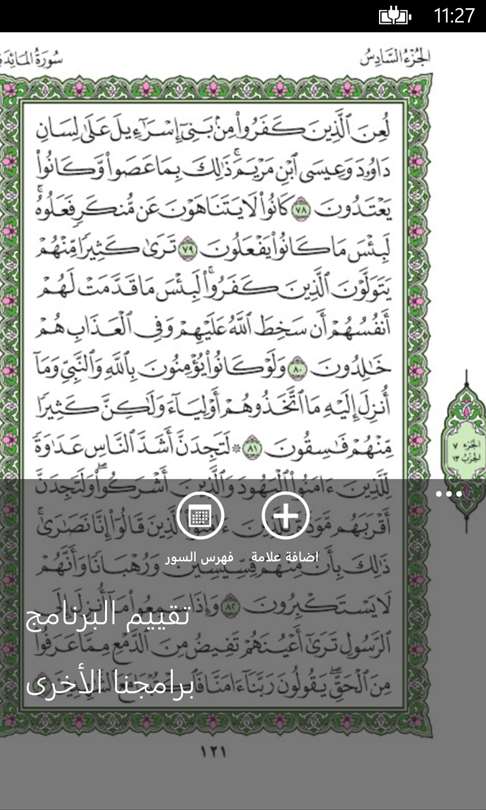 11:27
سُورَةُ المَائِدَة
الجُزْءُ السَّادِسُ
لُعِنَ ٱلَّذِينَ كَفَرُواْ مِنۢ بَنِيٓ إِسۡرَٰٓءِيلَ عَلَىٰ لِسَانِ
دَاوُۥدَ وَعِيسَى ٱبۡنِ مَرۡيَمَۚ ذَٰلِكَ بِمَا عَصَواْ وَّكَانُواْ
يَعۡتَدُونَ ٧٨ كَانُواْ لَا يَتَنَاهَوۡنَ عَن مُّنكَرٖ فَعَلُوهُۚ
لَبِئۡسَ مَا كَانُواْ يَفۡعَلُونَ ٧٩ تَرَىٰ كَثِيرٗا مِّنۡهُمۡ
يَتَوَلَّوۡنَ ٱلَّذِينَ كَفَرُواْۚ لَبِئۡسَ مَا قَدَّمَتۡ لَهُمۡ
أَنفُسُهُمۡ أَن سَخِطَ ٱللَّهُ عَلَيۡهِمۡ وَفِي ٱلۡعَذَابِ هُمۡ
خَٰلِدُونَ ٨٠ وَلَوۡ كَانُواْ يُؤۡمِنُونَ بِٱللَّهِ وَٱلنَّبِيِّ وَمَآ
أُنزِلَ إِلَيۡهِ مَا ٱتَّخَذُوهُمۡ أَوۡلِيَآءَ وَلَٰكِنَّ كَثِيرٗا
مِّنۡهُمۡ فَٰسِقُونَ ٨١ ۞ لَتَجِدَنَّ أَشَدَّ ٱلنَّاسِ عَدَٰوَةٗ
لِّلَّذِينَ ءَامَنُواْ ٱلۡيَهُودَ وَٱلَّذِينَ أَشۡرَكُواْۖ وَلَتَجِدَنَّ
أَقۡرَبَهُم مَّوَدَّةٗ ٱلَّذِينَ قَالُوٓاْ إِنَّا نَصَٰرَىٰۚ
ذَٰلِكَ بِأَنَّ مِنۡهُمۡ قِسِّيسِينَ وَرُهۡبَانٗا وَأَنَّهُمۡ
لَا يَسۡتَكۡبِرُونَ ٨٢ وَإِذَا سَمِعُواْ مَآ أُنزِلَ إِلَى
ٱلرَّسُولِ تَرَىٰٓ أَعۡيُنَهُمۡ تَفِيضُ مِنَ ٱلدَّمۡعِ مِمَّا عَرَفُواْ
مِنَ ٱلۡحَقِّۖ يَقُولُونَ رَبَّنَآ ءَامَنَّا
الجزء ٧
الحزب ١٣
اضافة علامة
فهرس السور
تقييم البرنامج
برامجنا الأخرى
١٢١